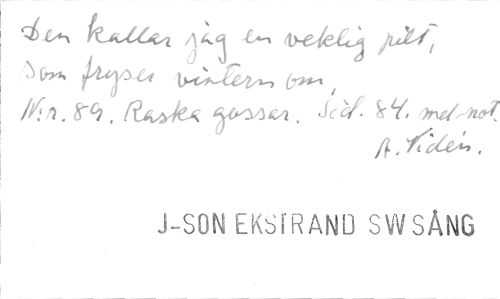 Den kallar jag en veklig pilt,
som fryser vintern om,
N:r. 89. Raska gossar. Sid. 84. med not.
A. Tidén.
J-SON EKSTRAND SW SÅNG